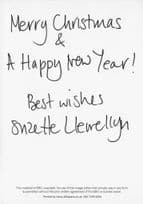 Merry Christmas
&
A Happy New Year!
Best wishes
Suzette Llewellyn